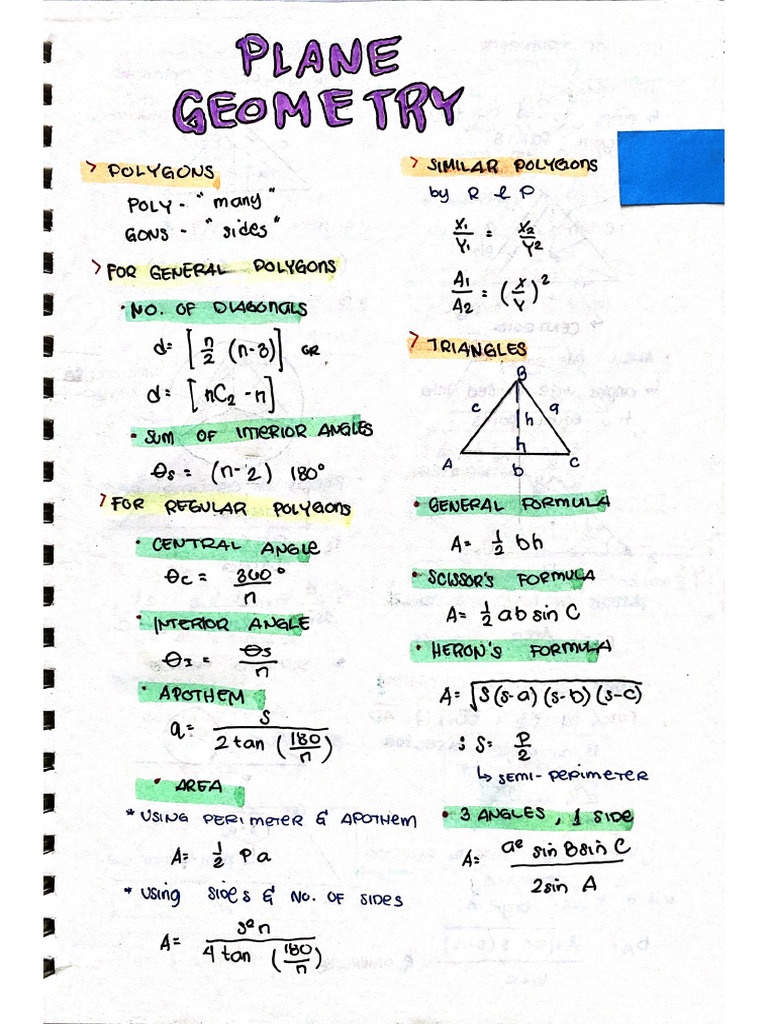 PLANE
GEOMETRY
> POLYGONS
POLY - "many"
GONS - "sides"
> FOR GENERAL POLYGONS
• NO. OF DIAGONALS
d = [n/2 (n-3)] OR
d = [nC₂ - n]
• SUM OF INTERIOR ANGLES
θs = (n-2) 180°
> FOR REGULAR POLYGONS
• CENTRAL ANGLE
θc = 360°/n
• INTERIOR ANGLE
θI = θs/n
• APOTHEM
a = s / 2 tan (180/n)
• AREA
* USING PERIMETER & APOTHEM
A = 1/2 Pa
* Using SIDES & NO. OF SIDES
A = s²n / 4 tan (180/n)
> SIMILAR POLYGONS
by R & P
X₁/Y₁ = X₂/Y₂
A₁/A₂ = (X/Y)²
> TRIANGLES
B
c h a
A b C
• GENERAL FORMULA
A = 1/2 bh
• SCISSOR'S FORMULA
A = 1/2 ab sin C
• HERON'S FORMULA
A = √S(s-a)(s-b)(s-c)
; S = P/2
↳ SEMI-PERIMETER
• 3 ANGLES, 1 SIDE
A = a² sin B sin C / 2 sin A